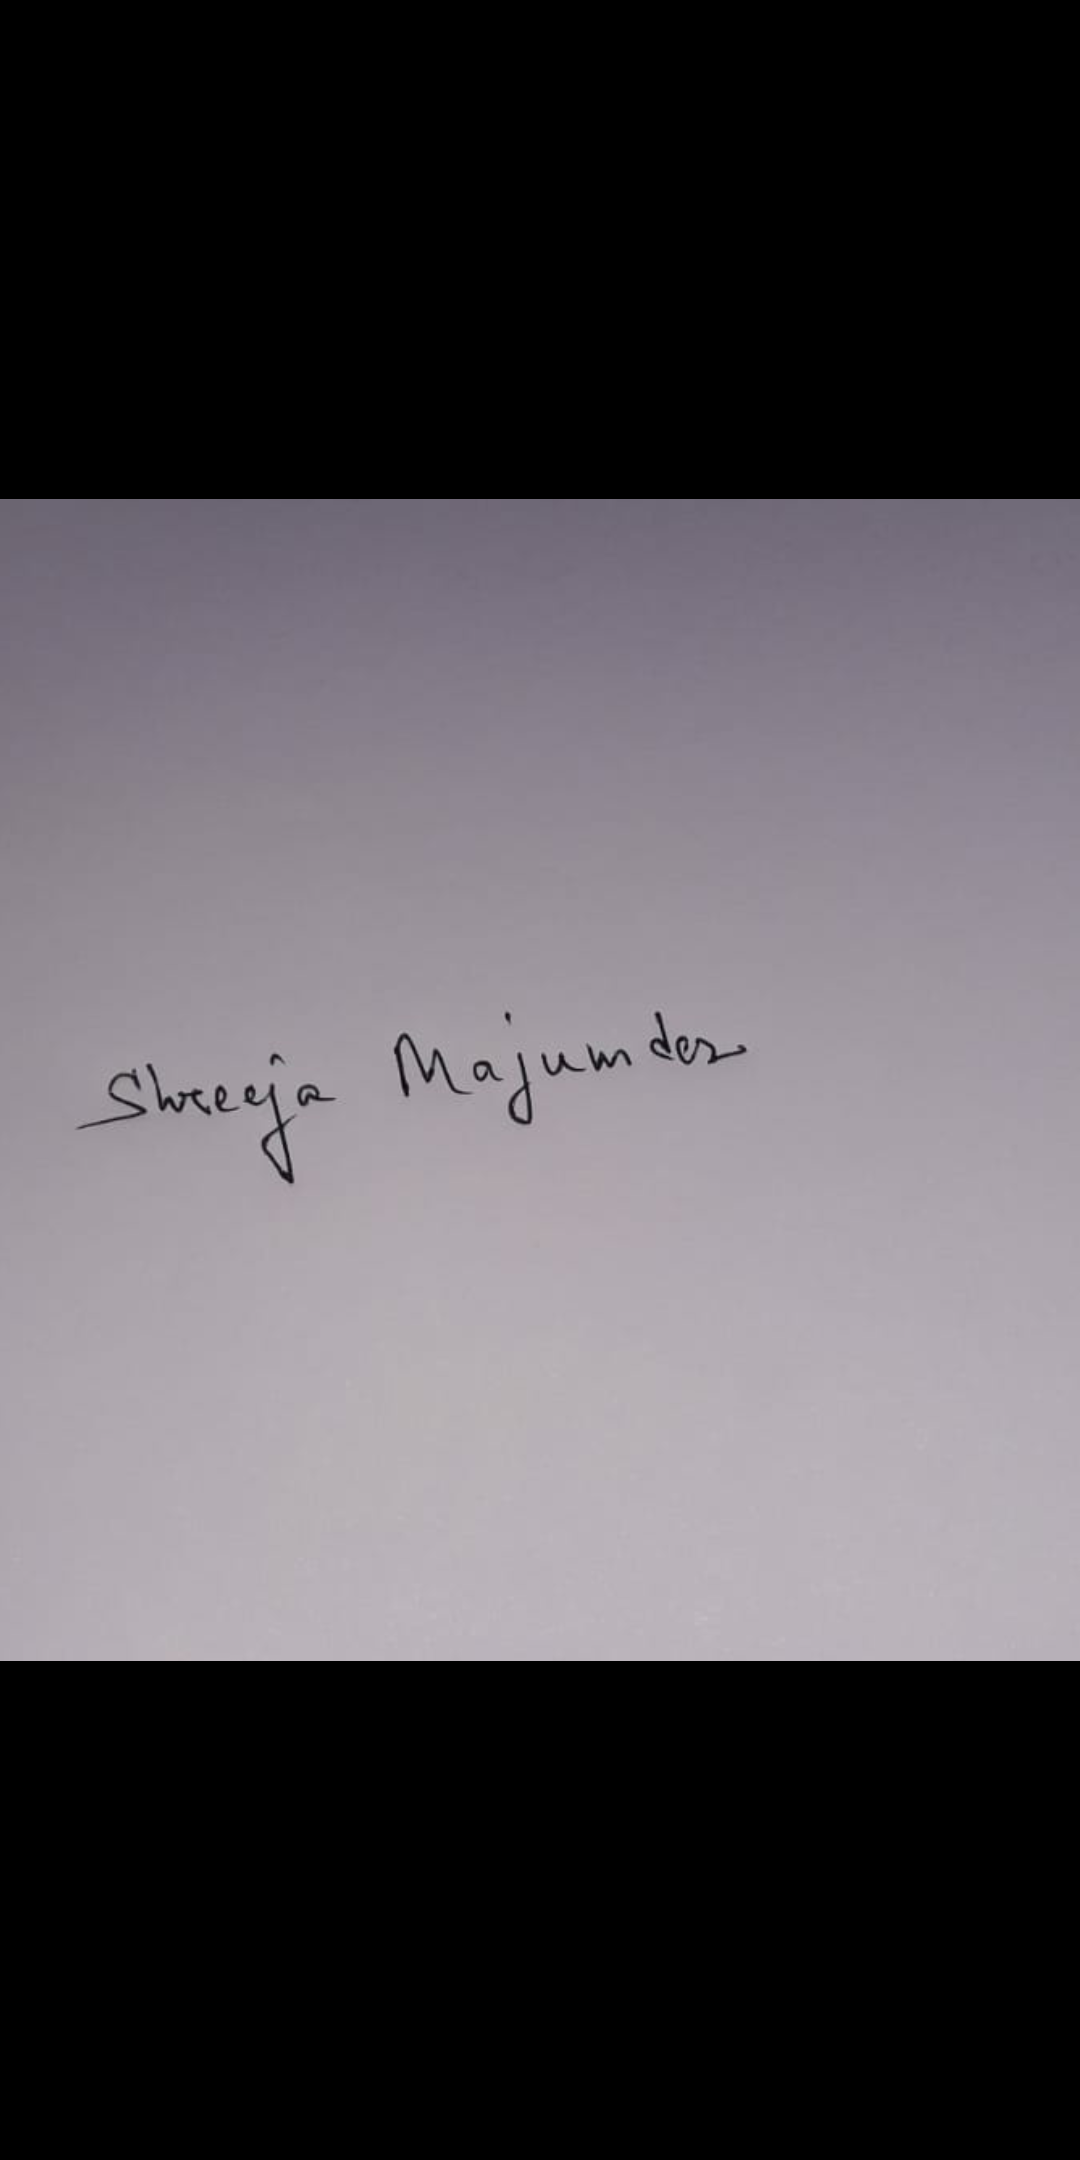 Shreeja Majumder